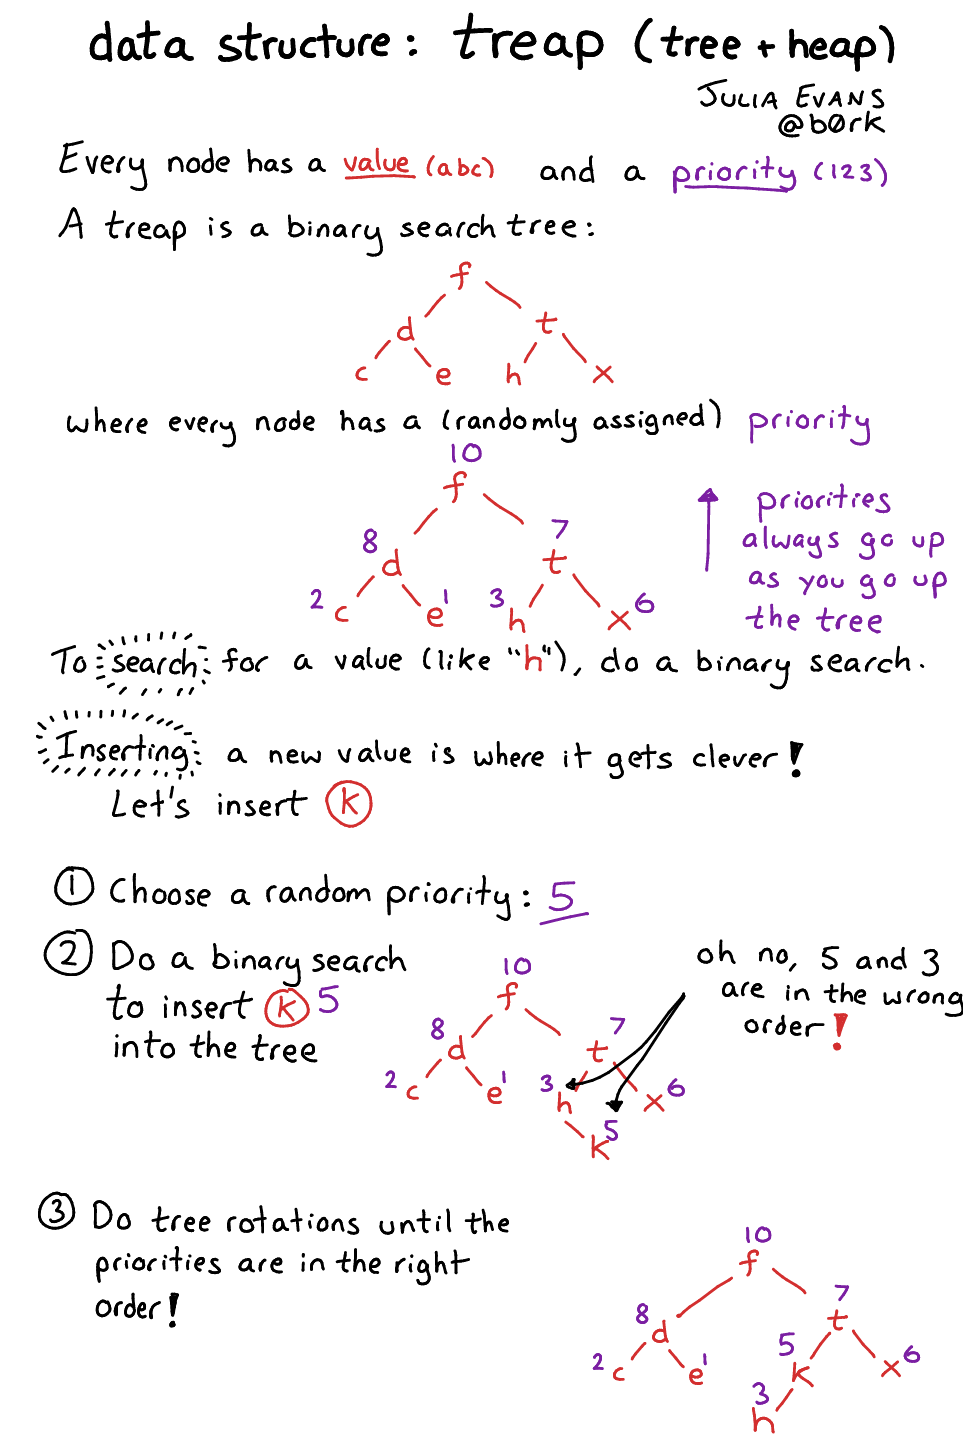 data structure: treap (tree + heap)
JULIA EVANS
@b0rk
Every node has a value (abc) and a priority (123)
A treap is a binary search tree:
f
d t
c e h x
where every node has a (randomly assigned) priority
10
f
8 7
d t
2 c e 1 3 h x 6
priorities
always go up
as you go up
the tree
To search for a value (like "h"), do a binary search.
Inserting a new value is where it gets clever!
Let's insert k
1 Choose a random priority: 5
2 Do a binary search
to insert k 5
into the tree
10
f
8 7
d t
2 c e 1 3 h x 6
k 5
oh no, 5 and 3
are in the wrong
order!
3 Do tree rotations until the
priorities are in the right
order!
10
f
8 7
d t
2 c e 1 5 k x 6
3
h